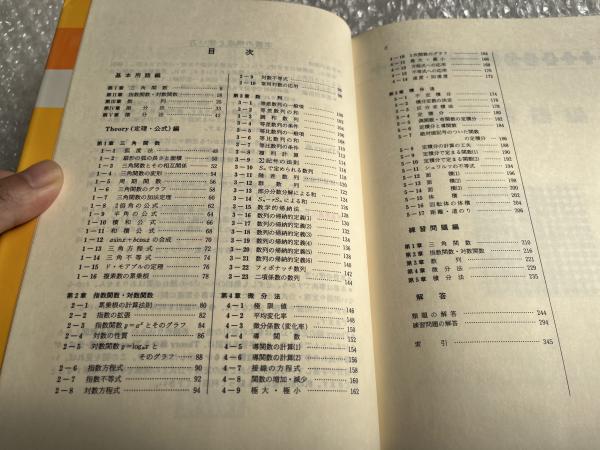 目次
基本用語編
第Ⅰ章 三角関数 6
第Ⅱ章 指数関数・対数関数
第Ⅲ章 数列
第Ⅳ章 微分法
第Ⅴ章 積分法
Theory (定理・公式) 編
第1章 三角関数
1-1 弧度法 48
1-2 扇形の弧の長さと面積 50
1-3 三角関数とその相互関係 52
1-4 三角関数の変則 54
1-5 周期関数 56
1-6 三角関数のグラフ 58
1-7 三角関数の加法定理 60
1-8 2倍角の公式 62
1-9 半角の公式 64
1-10 積和公式 66
1-11 和積公式 68
1-12 asinx+bcosxの合成 70
1-13 三角方程式 72
1-14 三角不等式 74
1-15 ド・モアブルの定理 76
1-16 複素数の累乗根 78
第2章 指数関数・対数関数
2-1 累乗根の計算法則 80
2-2 指数の拡張 82
2-3 指数関数y=aˣとそのグラフ 84
2-4 対数の性質 86
2-5 対数関数y=logₐxと
そのグラフ 88
2-6 指数方程式 90
2-7 指数不等式 92
2-8 対数方程式 94
2-9 対数不等式
2-10 常用対数の応用
第3章 数列
3-1 等差数列の一般項
3-2 等差数列の和
3-3 調和数列
3-4 等差数列の条件
3-5 等比数列の一般項
3-6 等比数列の和
3-7 等比数列の条件
3-8 複利計算
3-9 Σ記号の法則
3-10 Sₙで定められる数列
3-11 階差数列
3-12 群数列
3-13 部分分数分解による和
3-14 Sₙ-rSₙによる和
3-15 数学的帰納法
3-16 数列の帰納的定義(1)
3-17 数列の帰納的定義(2)
3-18 数列の帰納的定義(3)
3-19 数列の帰納的定義(4)
3-20 数列の帰納的定義(5)
3-21 数列の帰納的定義(6)
3-22 フィボナッチ数列 142
3-23 二項係数の数列 144
第4章 微分法
4-1 極限値 146
4-2 平均変化率 148
4-3 微分係数(変化率) 150
4-4 導関数 152
4-5 導関数の計算(1) 154
4-6 導関数の計算(2) 156
4-7 接線の方程式 158
4-8 関数の増加・減少 160
4-9 極大・極小 162
4-10 3次関数のグラフ 164
4-11 最大・最小 166
4-12 方程式への応用 168
4-13 不等式への応用 170
4-14 速度・加速度 172
第5章 積分法
5-1 不定積分 174
5-2 積分定数の決定
5-3 区分求積法
5-4 定積分
5-5 偶関数・奇関数の定積分
5-6 定積分と導関数
5-7 絶対値記号のついた関数
の定積分
5-8 定積分の計算の工夫
5-9 定積分で定まる関数(1)
5-10 定積分で定まる関数(2)
5-11 シュワルツの不等式
5-12 面積(1)
5-13 面積(2)
5-14 面積(3)
5-15 体積
5-16 回転体の体積
5-17 距離・道のり
練習問題編
第1章 三角関数 210
第2章 指数関数・対数関数 216
第3章 数列 221
第4章 微分法 229
第5章 積分法 235
解答
類題の解答 244
練習問題の解答 294
索引 345